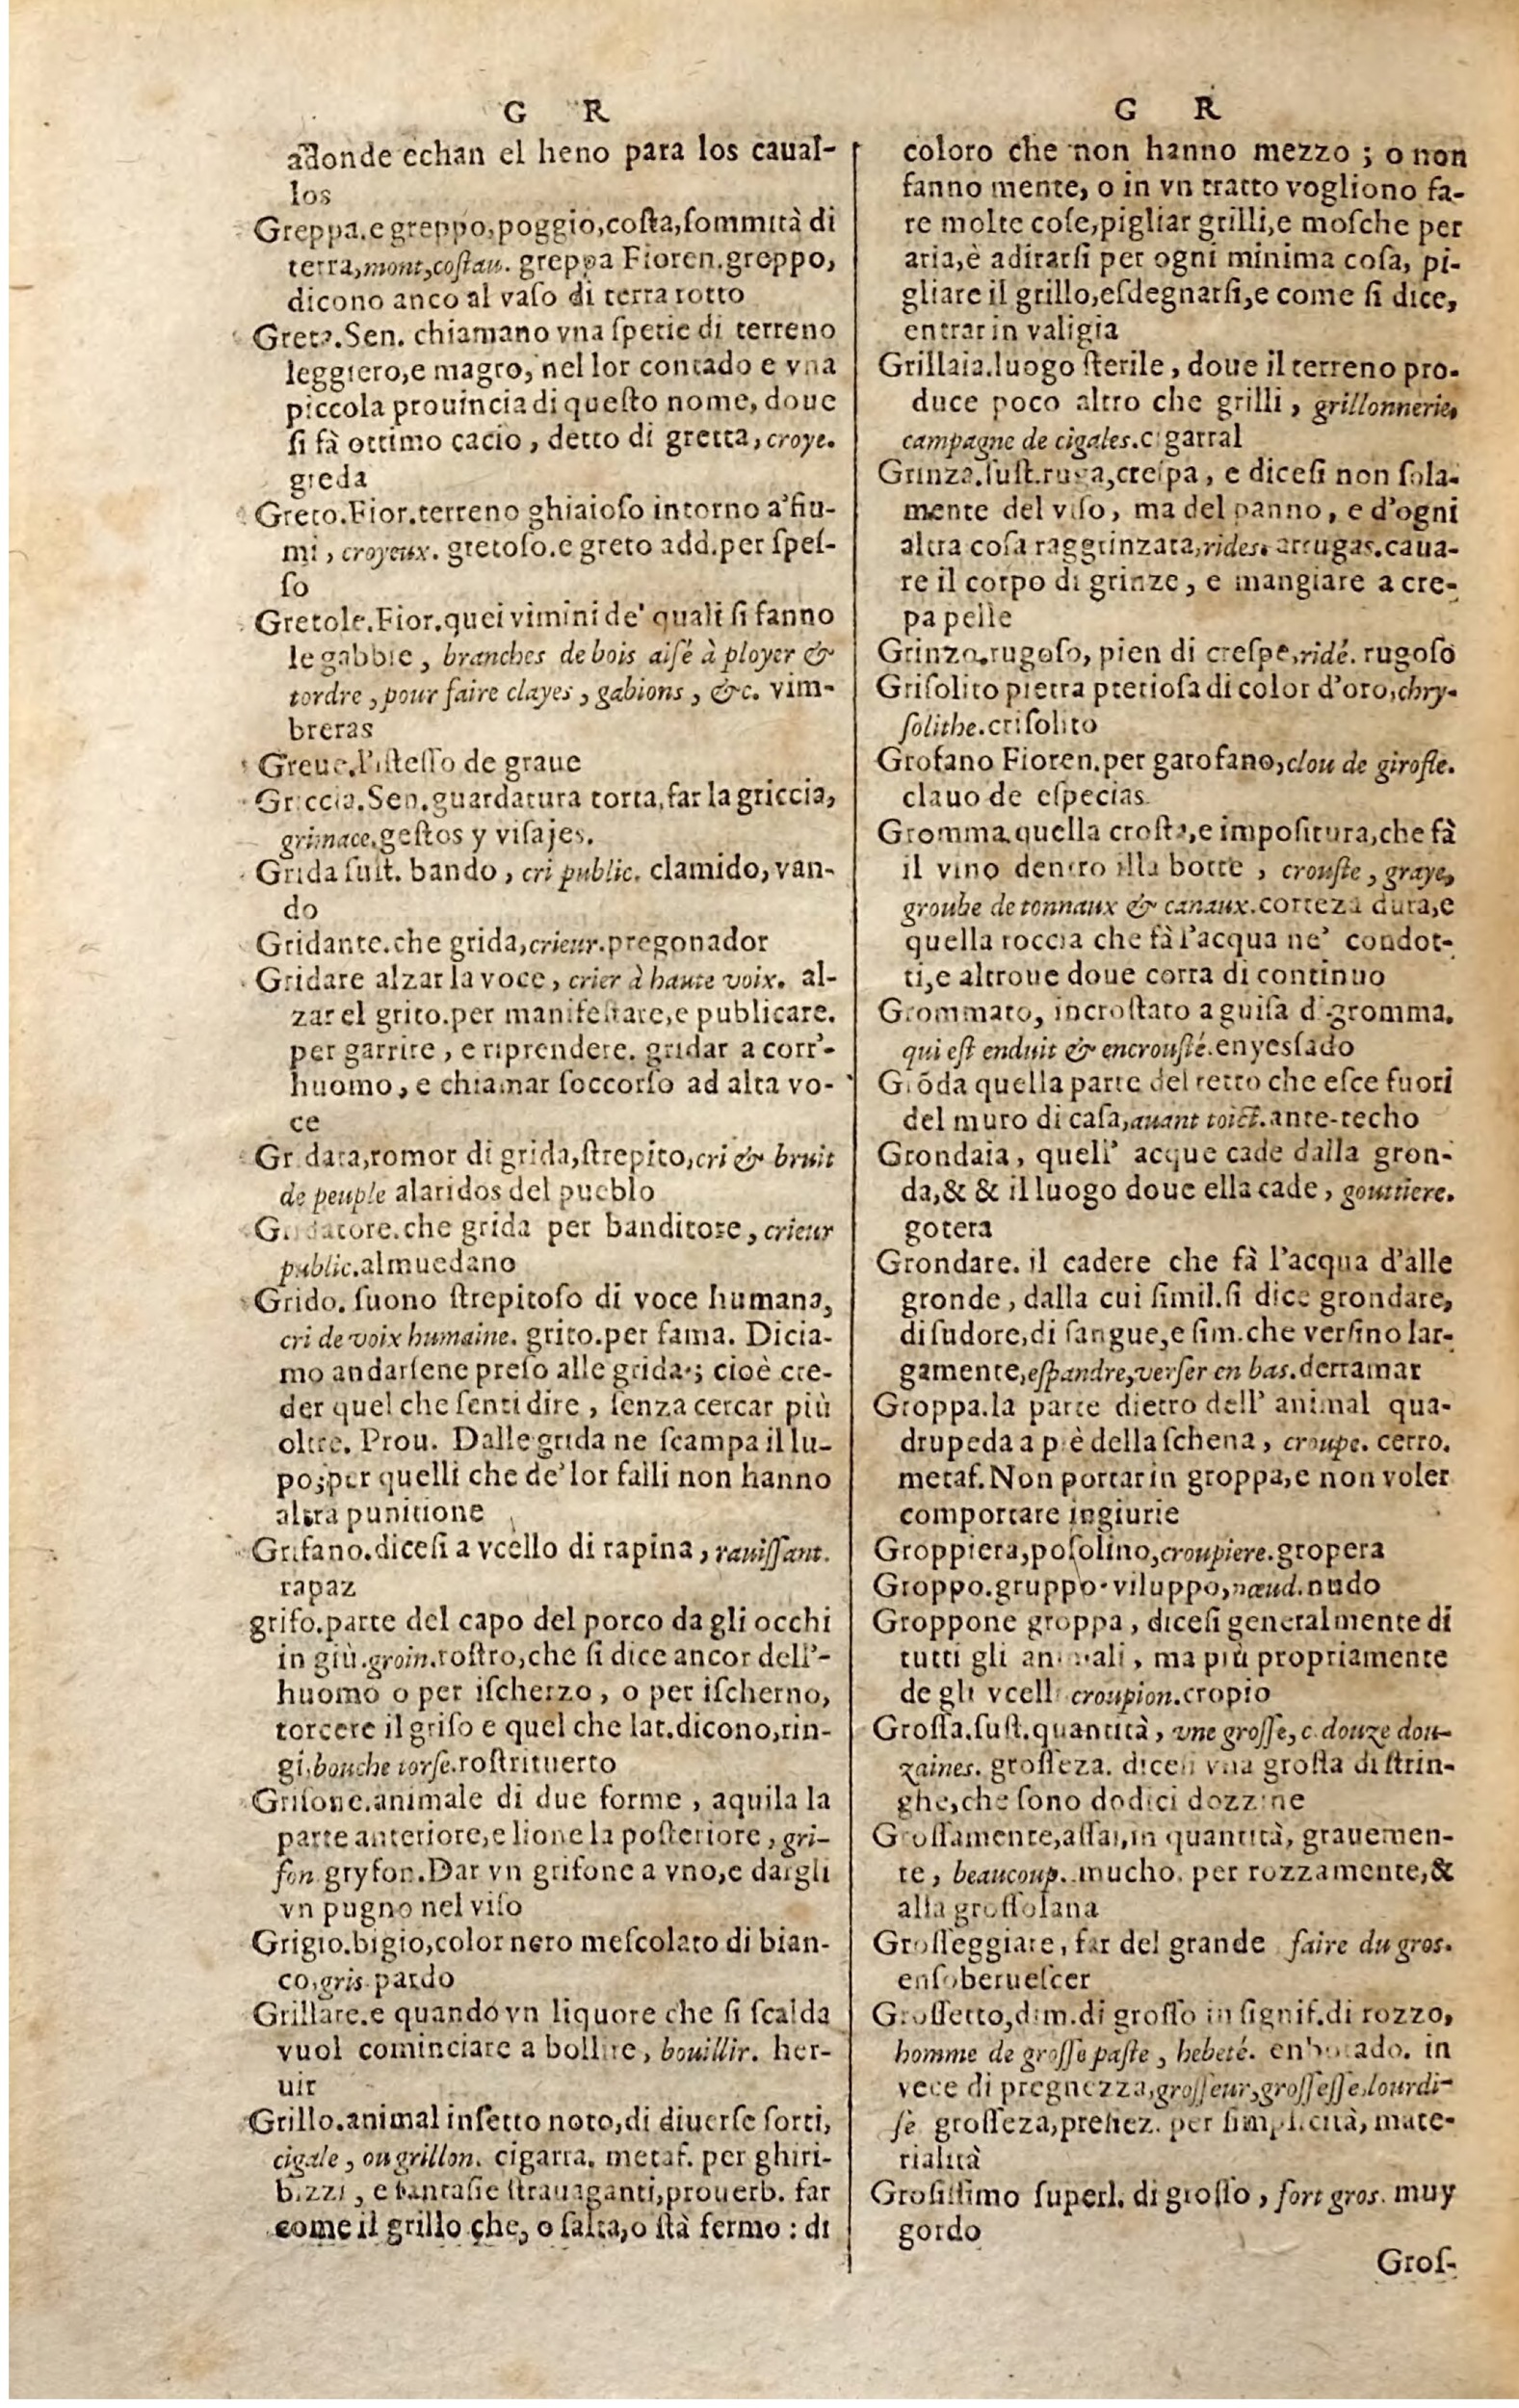 G R
adonde echan el heno para los caual-
los
Greppa.e greppo,poggio,coſta,ſommità di
terra,mont,coſtau. greppa Fioren.greppo,
dicono anco al vaſo di terra rotto
Greta.Sen. chiamano vna ſpetie di terreno
leggiero,e magro, nel lor contado e vna
piccola prouincia di queſto nome, doue
ſi fà ottimo cacio, detto di gretta, croye.
greda
Greto.Fior.terreno ghiaioſo intorno a'fiu-
mi, croyeux. gretoſo.e greto add.per ſpeſ-
ſo
Gretole.Fior.quei vimini de' quali ſi fanno
le gabbie, branches de bois aiſé à ployer &
tordre, pour faire clayes, gabions, &c. vim-
breras
Greue.l'iſteſſo de graue
Griccia.Sen.guardatura torta,far la griccia,
grimace.geſtos y viſajes.
Grida ſuſt. bando, cri public. clamido, van-
do
Gridante.che grida,crieur.pregonador
Gridare alzar la voce, crier à haute voix. al-
zar el grito.per manifeſtare,e publicare.
per garrire, e riprendere. gridar a corr'-
huomo, e chiamar ſoccorſo ad alta vo-
ce
Gridata,romor di grida,ſtrepito,cri & bruit
de peuple alaridos del pueblo
Gridatore.che grida per banditore, crieur
public.almuedano
Grido. ſuono ſtrepitoſo di voce humana,
cri de voix humaine. grito.per fama. Dicia-
mo andarſene preſo alle grida; cioè cre-
der quel che ſenti dire, ſenza cercar più
oltre. Prou. Dalle grida ne ſcampa il lu-
po;per quelli che de'lor falli non hanno
altra punitione
Grifano.diceſi a vcello di rapina, rauiſſant.
rapaz
grifo.parte del capo del porco da gli occhi
in giù.groin.roſtro,che ſi dice ancor dell'-
huomo o per iſcherzo, o per iſcherno,
torcere il grifo e quel che lat.dicono,rin-
gi,bouche torſe.roſtrituerto
Grifone.animale di due forme, aquila la
parte anteriore,e lione la poſteriore, gri-
fon gryfon.Dar vn grifone a vno,e dargli
vn pugno nel viſo
Grigio.bigio,color nero meſcolato di bian-
co,gris pardo
Grillare.e quando vn liquore che ſi ſcalda
vuol cominciare a bollire, bouillir. her-
uir
Grillo.animal inſetto noto,di diuerſe ſorti,
cigale, ou grillon. cigarra. metaf. per ghiri-
bizzi, e fantaſie ſtrauaganti,prouerb. far
come il grillo che, o ſalta,o ſtà fermo: di
G R
coloro che non hanno mezzo; o non
fanno mente, o in vn tratto vogliono fa-
re molte coſe,pigliar grilli,e moſche per
aria,è adirarſi per ogni minima coſa, pi-
gliare il grillo,eſdegnarſi,e come ſi dice,
entrar in valigia
Grillaia.luogo ſterile, doue il terreno pro-
duce poco altro che grilli, grillonnerie,
campagne de cigales.cigarral
Grinza.ſuſt.ruga,creſpa, e diceſi non ſola-
mente del viſo, ma del panno, e d'ogni
altra coſa raggrinzata,rides. arrugas.caua-
re il corpo di grinze, e mangiare a cre-
pa pelle
Grinzo.rugoſo, pien di creſpe,ridé. rugoſo
Griſolito pietra pretioſa di color d'oro,chry-
ſolithe.criſolito
Grofano Fioren.per garofano,clou de girofle.
clauo de eſpecias
Gromma quella croſta,e impoſitura,che fà
il vino dentro illa botte, crouſte, graye,
groube de tonnaux & canaux.corteza dura,e
quella roccia che fà l'acqua ne' condot-
ti,e altroue doue corra di continuo
Grommato, incroſtato a guiſa di gromma.
qui eſt enduit & encrouſté.enyeſſado
Grōda quella parte del tetto che eſce fuori
del muro di caſa,auant toict.ante-techo
Grondaia, quell' acque cade dalla gron-
da,& & il luogo doue ella cade, gouttiere.
gotera
Grondare. il cadere che fà l'acqua d'alle
gronde, dalla cui ſimil.ſi dice grondare,
di ſudore,di ſangue,e ſim.che verſino lar-
gamente,eſpandre,verſer en bas.derramar
Groppa.la parte dietro dell' animal qua-
drupeda a piè della ſchena, croupe. cerro.
metaf.Non portar in groppa,e non voler
comportare ingiurie
Groppiera,poſolino,croupiere.gropera
Groppo.gruppo·viluppo,nœud.nudo
Groppone groppa, diceſi generalmente di
tutti gli animali, ma più propriamente
de gli vcelli croupion.cropio
Groſſa.ſuſt.quantità, vne groſſe, c. douze dou-
zaines. groſſeza. diceſi vna groſſa di ſtrin-
ghe,che ſono dodici dozzine
Groſſamente,aſſai,in quantità, grauemen-
te, beaucoup. mucho. per rozzamente,&
alla groſſolana
Groſſeggiare, far del grande faire du gros.
enſoberueſcer
Groſſetto,dim.di groſſo in ſignif.di rozzo,
homme de groſſe paſte, hebeté. enbotado. in
vece di pregnezza,groſſeur,groſſeſſe,lourdi-
ſe groſſeza,preñez. per ſimplicità, mate-
rialità
Groſiſſimo ſuperl. di groſſo, fort gros. muy
gordo
Groſ-